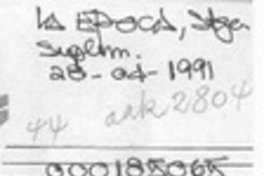 LA EPOCA, Stgo
Suplem.
28-oct-1991
aak 2804
44
000185065